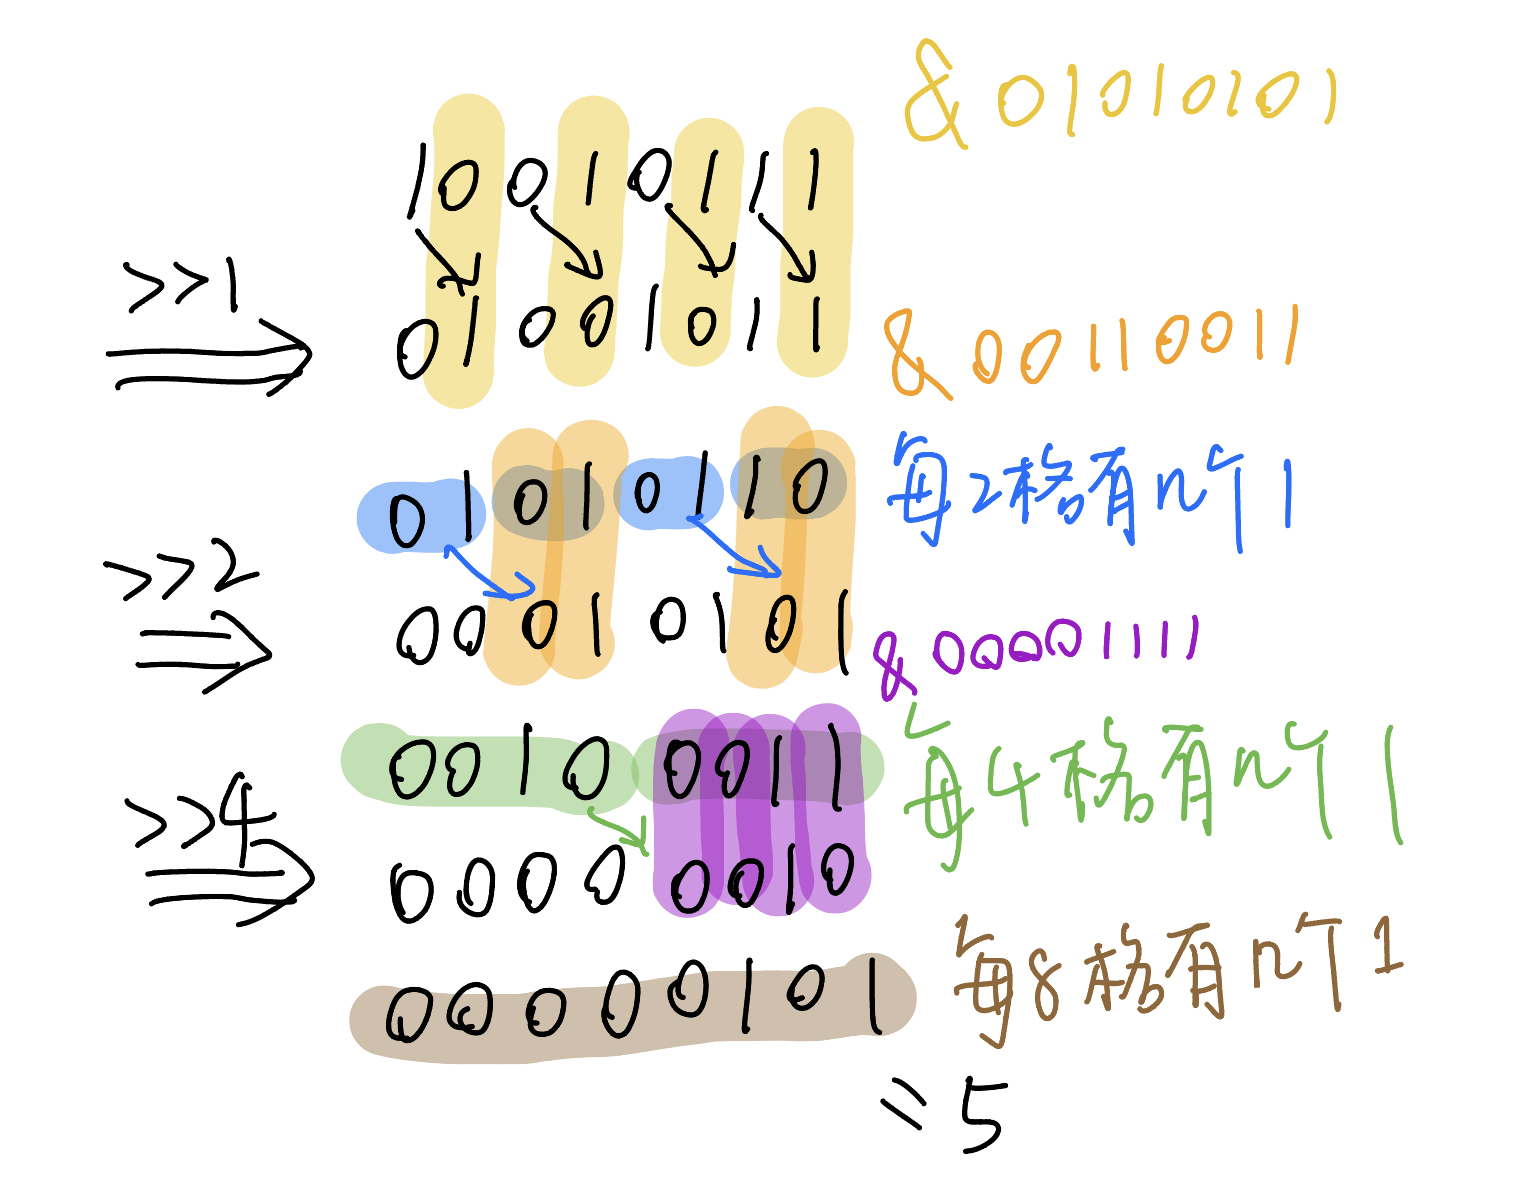 & 01010101
10010111
>>1
01001011
& 00110011
01010110
每2格有n个1
>>2
00010101
& 00001111
00100011
每4格有n个1
>>4
00000010
00000101
每8格有n个1
= 5